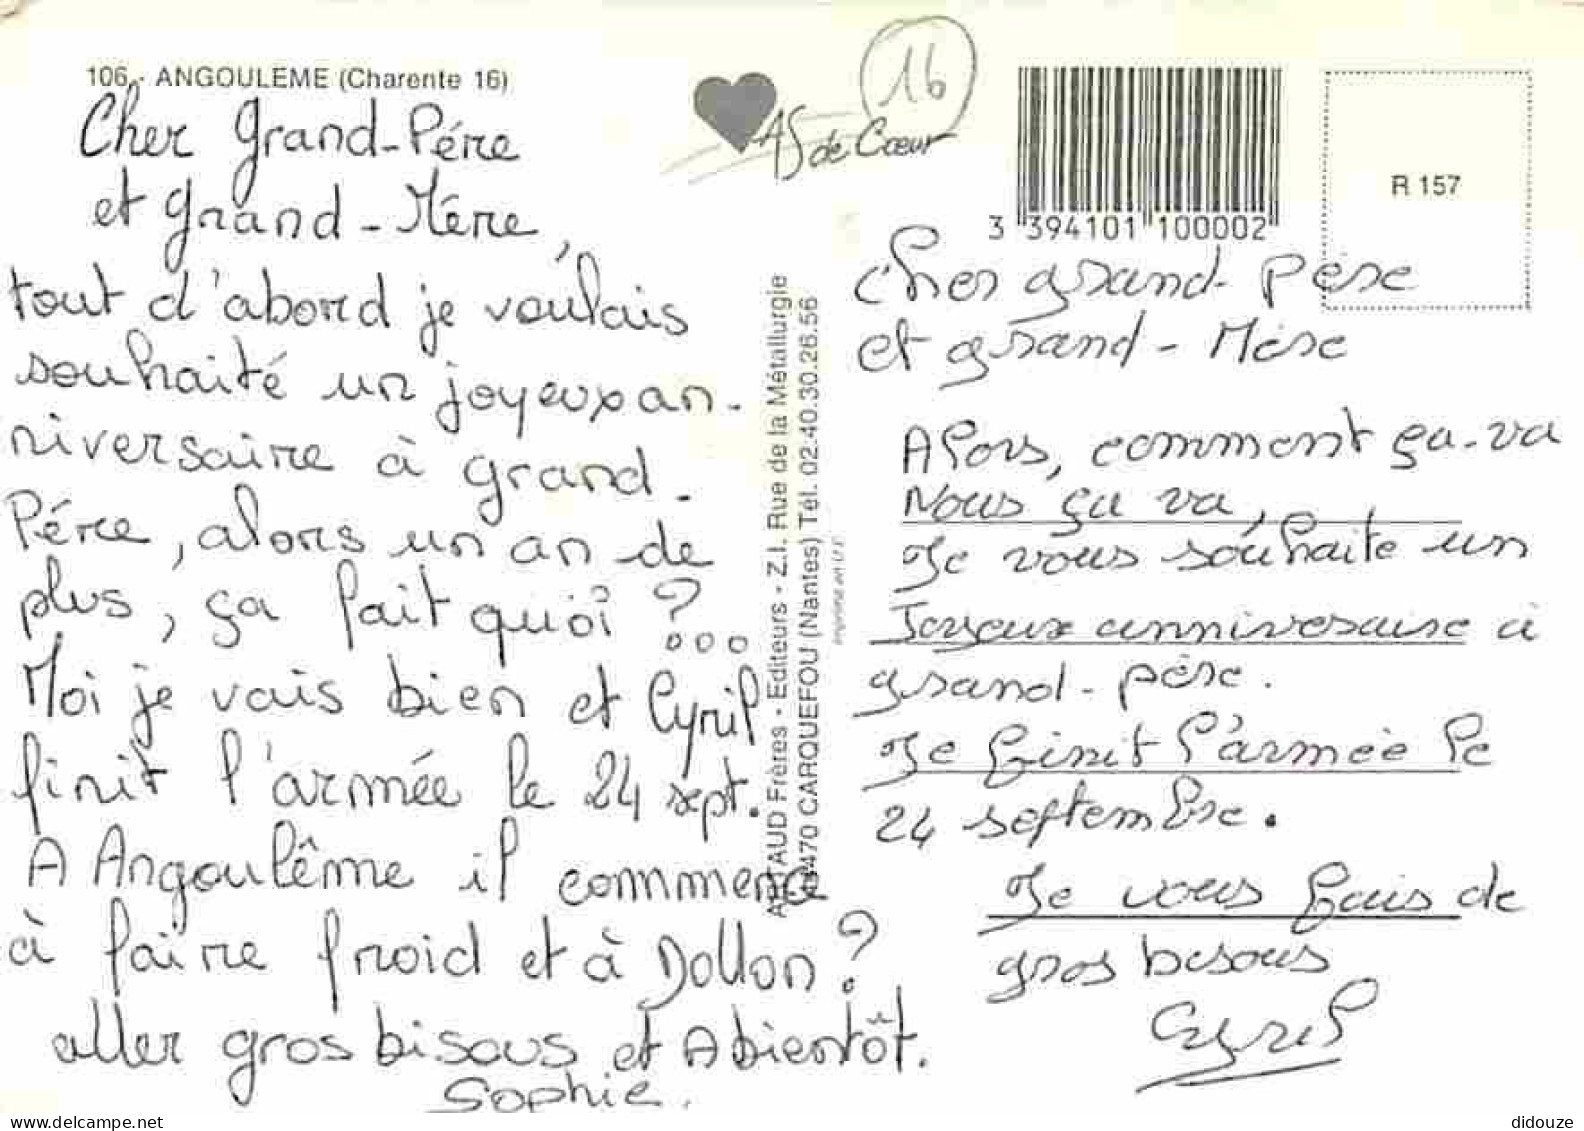 106 - ANGOULEME (Charente 16)
Cher grand-Pére
et grand-Mére,
tout d'abord je voulais
souhaité un joyeux an-
niversaire à grand-
Pére, alors un an de
plus, ça fait quoi ?...
Moi je vais bien et Cyril
finit l'armée le 24 sept.
A Angoulême il commence
à faire froid et à Dollon ?
aller gros bisous et A bientôt.
Sophie.
ARTAUD Frères - Editeurs - Z.I. Rue de la Métallurgie
44470 CARQUEFOU (Nantes) Tél. 02.40.30.26.56
Imprimé en U.E.
AS de Cœur
16
3 394101 100002
R 157
Cher grand-Pére
et grand-Mére
Alors, comment ça-va
Nous ça va,
Je vous souhaite un
Joyeux anniversaire à
grand-pére.
Je finit l'armée le
24 septembre.
Je vous fais de
gros bisous
Cyril
didouze
www.delcampe.net